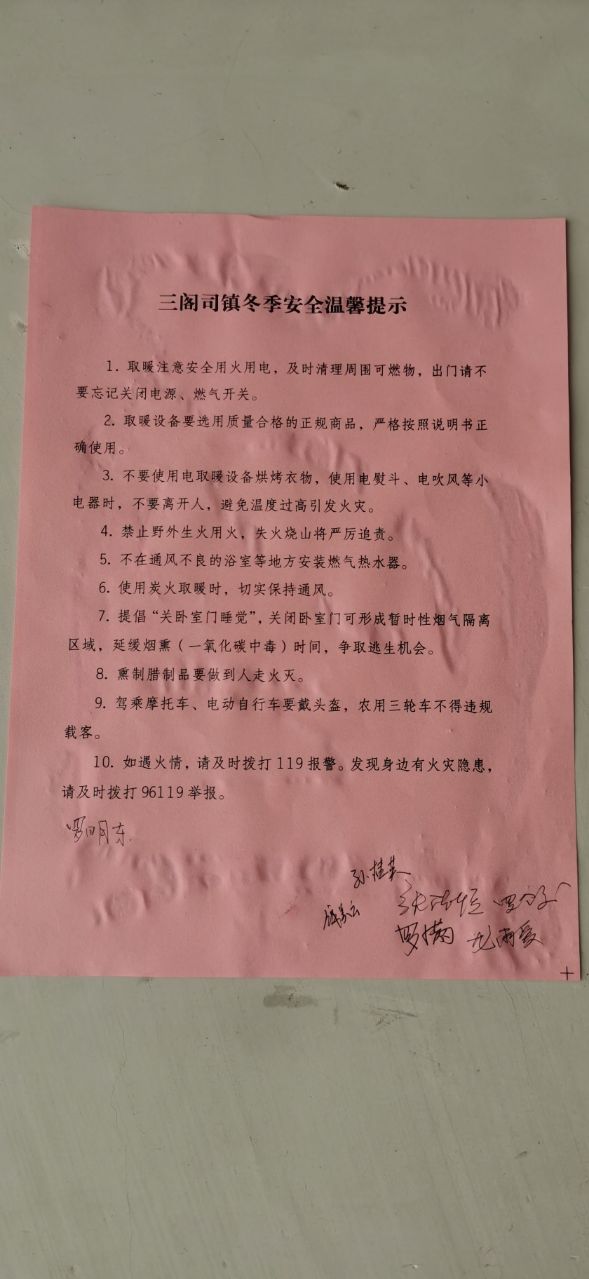 三阁司镇冬季安全温馨提示
1. 取暖注意安全用火用电，及时清理周围可燃物，出门请不
要忘记关闭电源、燃气开关。
2. 取暖设备要选用质量合格的正规商品，严格按照说明书正
确使用。
3. 不要使用电取暖设备烘烤衣物，使用电熨斗、电吹风等小
电器时，不要离开人，避免温度过高引发火灾。
4. 禁止野外生火用火，失火烧山将严厉追责。
5. 不在通风不良的浴室等地方安装燃气热水器。
6. 使用炭火取暖时，切实保持通风。
7. 提倡“关卧室门睡觉”，关闭卧室门可形成暂时性烟气隔离
区域，延缓烟熏（一氧化碳中毒）时间，争取逃生机会。
8. 熏制腊制品要做到人走火灭。
9. 驾乘摩托车、电动自行车要戴头盔，农用三轮车不得违规
载客。
10. 如遇火情，请及时拨打 119 报警。发现身边有火灾隐患，
请及时拨打 96119 举报。
罗明东
孙桂英